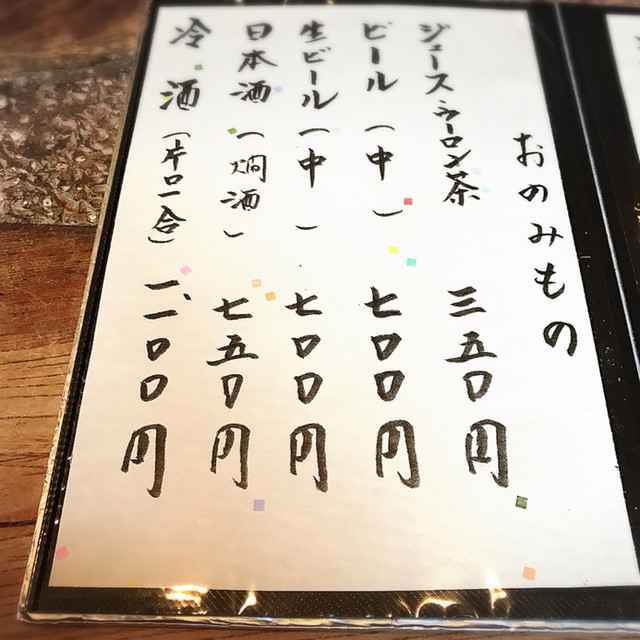 おのみもの
ジュース・ウーロン茶 三五〇円
ビール（中） 七〇〇円
生ビール（中） 七〇〇円
日本酒（燗酒） 七五〇円
冷酒（片口一合） 一、一〇〇円